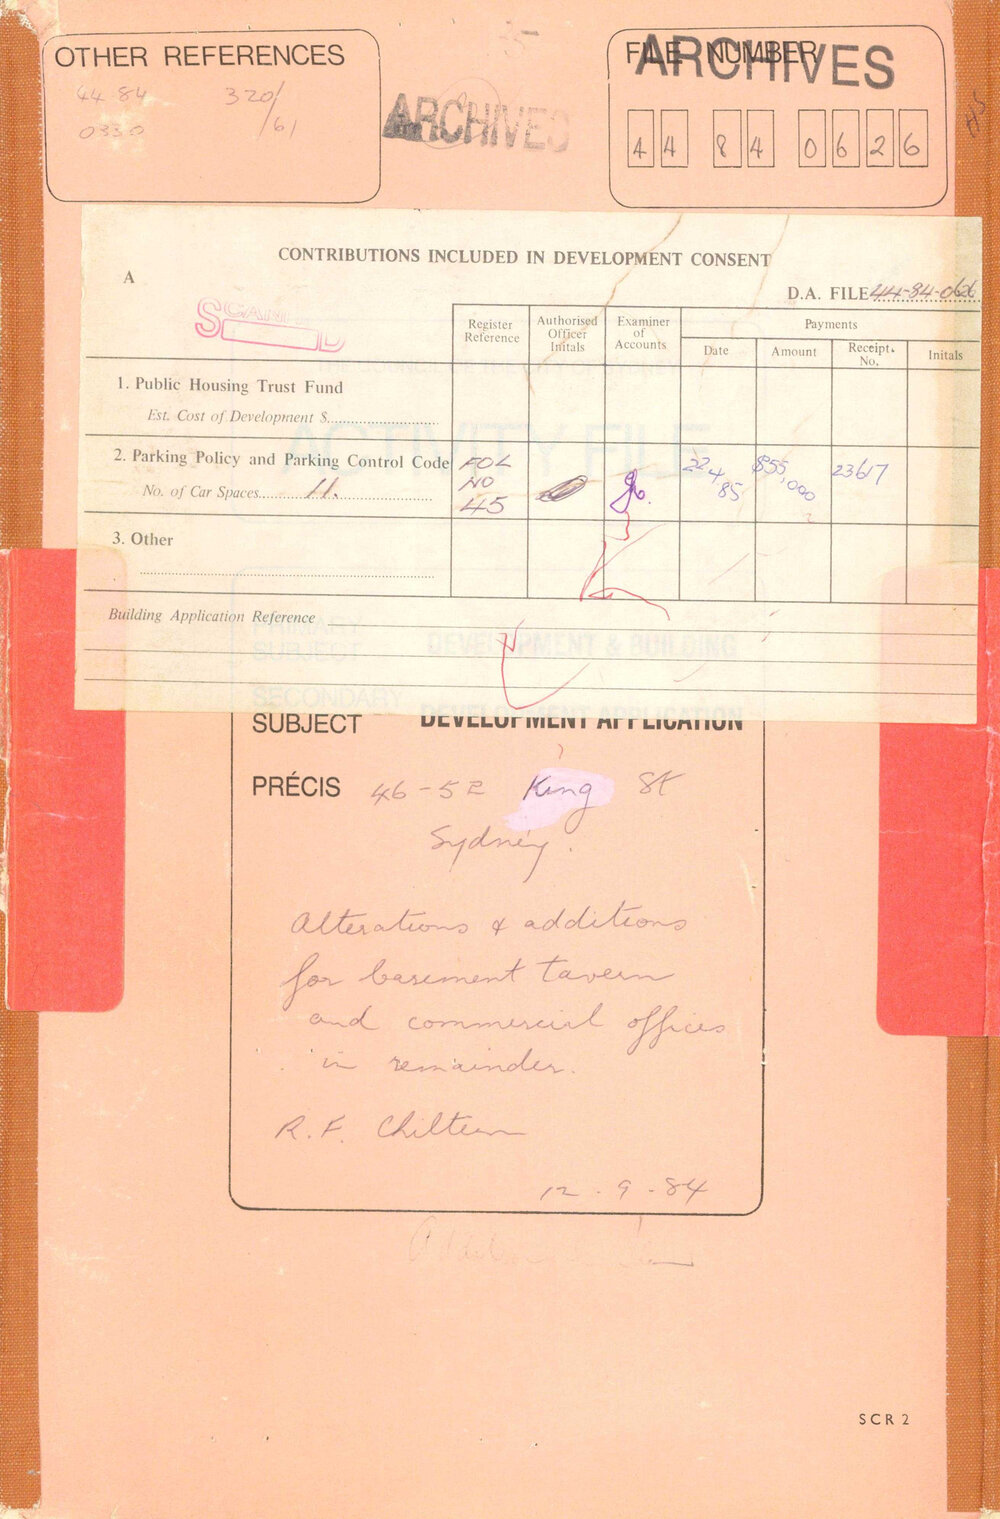 OTHER REFERENCES
44-84
0330
320/
/61
ARCHIVES
FILE NUMBER
ARCHIVES
44 84 0626
CONTRIBUTIONS INCLUDED IN DEVELOPMENT CONSENT
A
D.A. FILE 44-84-0626
SCANNED
Register Reference
Authorised Officer Initals
Examiner of Accounts
Payments
Date
Amount
Receipt. No.
Initals
1. Public Housing Trust Fund
Est. Cost of Development $
2. Parking Policy and Parking Control Code
No. of Car Spaces 11.
FOL
NO
45
22
4
85
$55,000
23617
3. Other
Building Application Reference
THE COUNCIL OF THE CITY OF SYDNEY
ACTIVITY FILE
PRIMARY
SUBJECT
DEVELOPMENT & BUILDING
SECONDARY
SUBJECT
DEVELOPMENT APPLICATION
PRÉCIS 46-52 King St
Sydney.
Alterations & additions
for basement tavern
and commercial offices
in remainder.
R.F. Chiltern
12.9.84
SCR 2